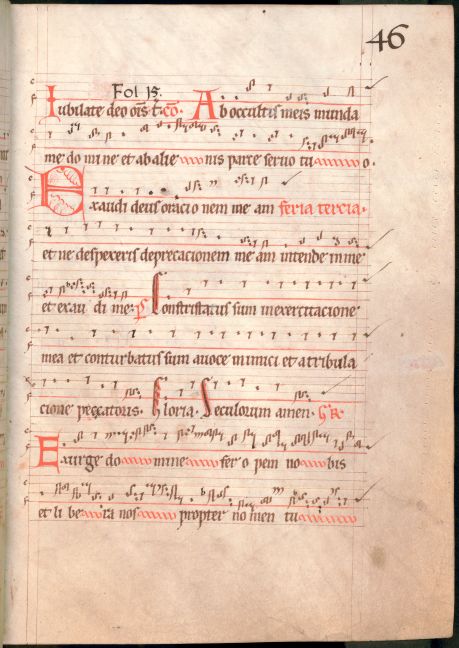 46
Fol 15.
Iubilate deo oīs t̄. cō. Ab occultis meis munda
me do mine et ab alie nis parce seruo tu o.
Exaudi deus oracio nem me am feria tercia.
et ne despexeris deprecacionem me am intende in me
et exau di me. p̄s Constristatus sum in exercitacione
mea et conturbatus sum a uoce inimici et a tribula
cione peccatoris. Gloria. Seculorum amen. Gr̄.
Exurge do mine fer o pem no bis
et li be ra nos propter no men tu